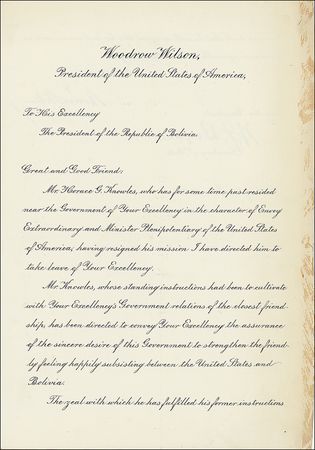 Woodrow Wilson,
President of the United States of America,
To His Excellency
The President of the Republic of Bolivia.
Great and Good Friend:
Mr. Horace G. Knowles, who has for some time past resided
near the Government of Your Excellency in the character of Envoy
Extraordinary and Minister Plenipotentiary of the United States
of America, having resigned his mission I have directed him to
take leave of Your Excellency.
Mr. Knowles, whose standing instructions had been to cultivate
with Your Excellency's Government relations of the closest friend-
ship, has been directed to convey Your Excellency the assurance
of the sincere desire of this Government to strengthen the friend-
ly feeling happily subsisting between the United States and
Bolivia.
The zeal with which he has fulfilled his former instructions